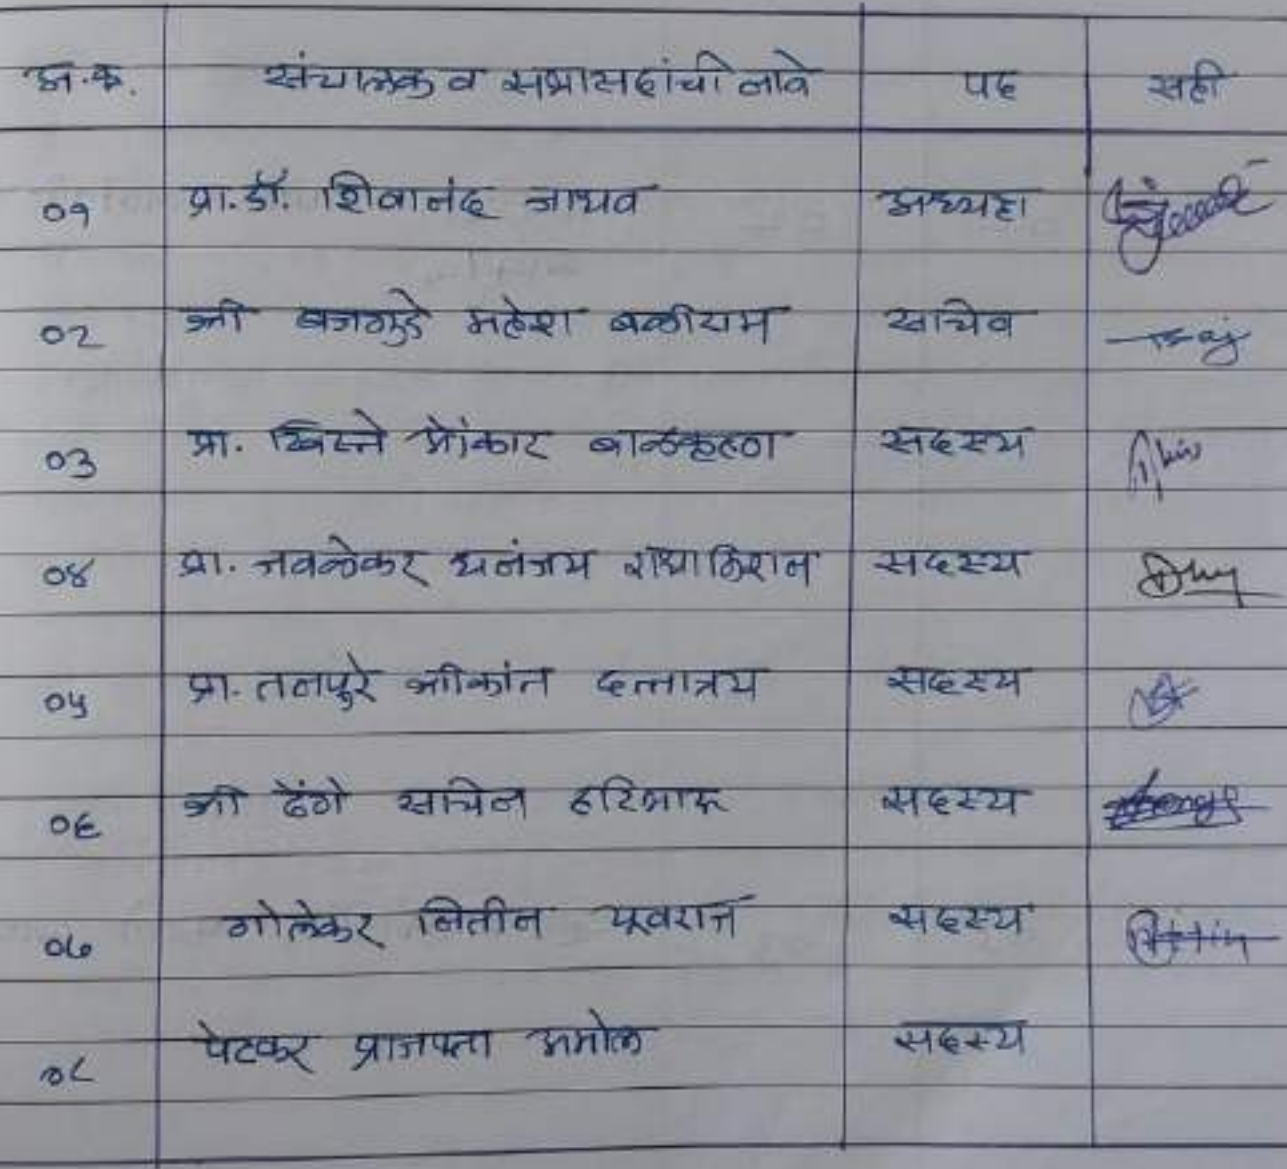 अ.क्र. संचालक व सभासदांची नावे पद सही
०१ प्रा.डॉ. शिवानंद जाधव अध्यक्ष
०२ श्री बजगुडे महेश बळीराम सचिव
०३ प्रा. खिस्ते ओंकार बाळकृष्ण सदस्य
०४ प्रा. नवळेकर धनंजय राधाकिशन सदस्य
०५ प्रा. तनपुरे श्रीकांत दत्तात्रय सदस्य
०६ श्री ढेंगे सचिन हरिभाऊ सदस्य
०७ गोलेकर नितीन युवराज सदस्य Nitin
०८ पेटकर प्राजक्ता अमोल सदस्य